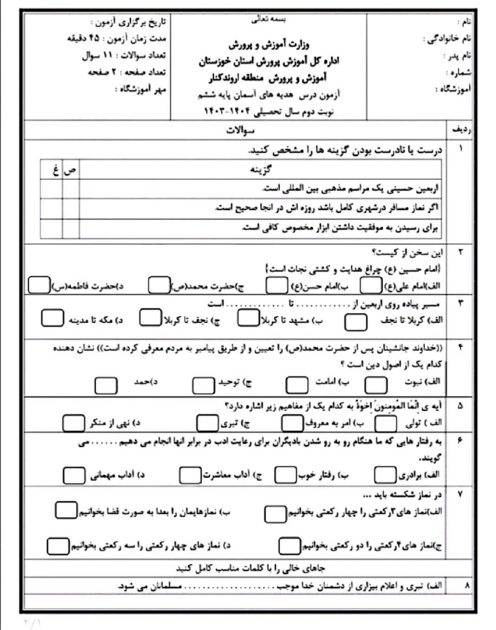 بسمه تعالی
نام :
نام خانوادگی :
نام پدر :
شماره :
آموزشگاه :
وزارت آموزش و پرورش
اداره کل آموزش پرورش استان خوزستان
آموزش و پرورش منطقه اروندکنار
آزمون درس هدیه های آسمان پایه ششم
نوبت دوم سال تحصیلی ۱۴۰۴-۱۴۰۳
تاریخ برگزاری آزمون :
مدت زمان آزمون : ۴۵ دقیقه
تعداد سوالات : ۱۱ سوال
تعداد صفحه : ۲ صفحه
مهر آموزشگاه :
ردیف سوالات
۱ درست یا نادرست بودن گزینه ها را مشخص کنید.
گزینه ص غ
اربعین حسینی یک مراسم مذهبی بین المللی است.
اگر نماز مسافر درشهری کامل باشد روزه اش در انجا صحیح است.
برای رسیدن به موفقیت داشتن ابزار مخصوص کافی است.
۲ این سخن از کیست؟
{امام حسین (ع) چراغ هدایت و کشتی نجات است}
الف)امام علی(ع) ب)امام حسن(ع) ج)حضرت محمد(ص) د)حضرت فاطمه(س)
۳ مسیر پیاده روی اربعین از ............ تا ............ است
الف) کربلا تا نجف ب) مشهد تا کربلا ج) نجف تا کربلا د) مکه تا مدینه
۴ ((خداوند جانشینان پس از حضرت محمد(ص) را تعیین و از طریق پیامبر به مردم معرفی کرده است)) نشان دهنده
کدام یک از اصول دین است ؟
الف) نبوت ب) امامت ج) توحید د)حمد
۵ آیه ی إنَّمَا المُومِنونَ إخوَةٌ به کدام یک از مفاهیم زیر اشاره دارد؟
الف ) تولی ب) امر به معروف ج) تبری د) نهی از منکر
۶ به رفتار هایی که ما هنگام رو به رو شدن بادیگران برای رعایت ادب در برابر انها انجام می دهیم ...... می
گویند.
الف) برادری ب) رفتار خوب ج) آداب معاشرت د) آداب مهمانی
۷ در نماز شکسته باید ...
الف)نماز های۳رکعتی را چهار رکعتی بخوانیم ب) نمازهایمان را بعدا به صورت قضا بخوانیم
ج)نماز های۴رکعتی را دو رکعتی بخوانیم د) نماز های چهار رکعتی را سه رکعتی بخوانیم
جاهای خالی را با کلمات مناسب کامل کنید
۸ الف) تبری و اعلام بیزاری از دشمنان خدا موجب .................... مسلمانان می شود.
۲/۱